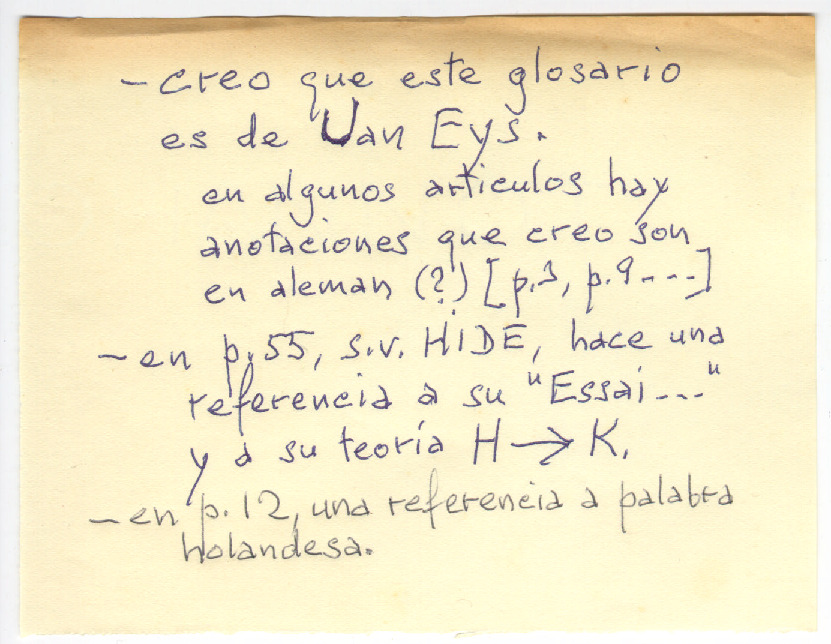 - creo que este glosario
es de Van Eys.
en algunos articulos hay
anotaciones que creo son
en aleman (?) [p.3, p.9 ----]
- en p.55, s.v. HiDE, hace una
referencia a su "Essai ---"
y a su teoría H → K.
- en p.12, una referencia a palabra
holandesa.